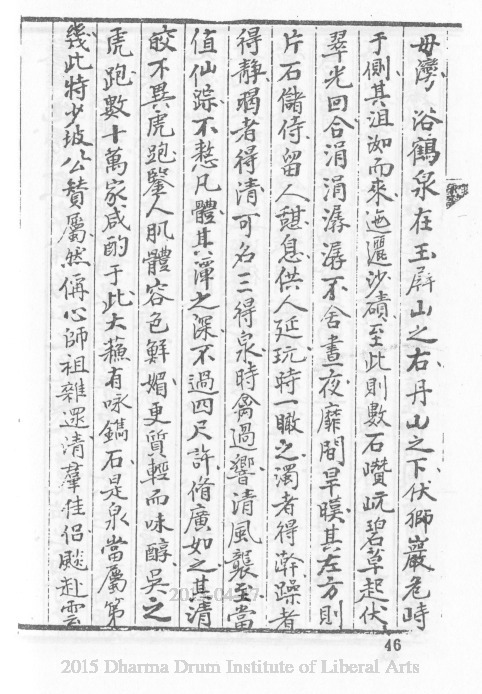 毋灣浴鶴泉在玉屏山之右丹山之下伏獅巖危峙
于側其沮洳而來迤邐沙磧至此則數石巑岏碧草起伏
翠光回合涓涓潺潺不舍晝夜靡間旱暵其左方則
片石儲侍留人憇息供人延玩時一瞰之濁者得澣躁者
得靜弱者得清可名三得泉時禽過響清風襲至當
值仙踪不愁凡體其渾之深不過四尺許脩廣如之其清
皎不異虎跑鑒人肌體容色鮮媚更質輕而味醇吳之
虎跑數十萬家咸酌于此大蘓有咏鐫石是泉當屬第
幾此特少坡公贊屬然偁心師祖雜還清羣佳侶飈赴雲
46
2015 Dharma Drum Institute of Liberal Arts